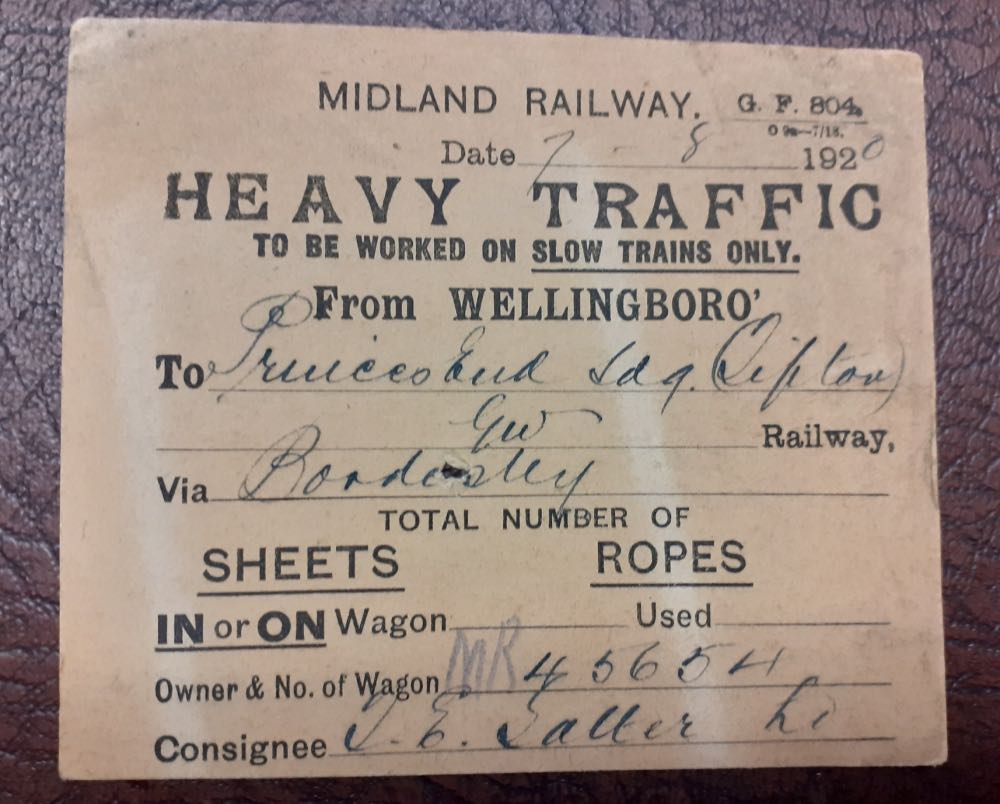 MIDLAND RAILWAY. G. F. 804.
Date 7 - 8 1920
HEAVY TRAFFIC
TO BE WORKED ON SLOW TRAINS ONLY.
From WELLINGBORO'
To Princes End Sdg. (Tipton)
GW Railway,
Via Bordesley
TOTAL NUMBER OF
SHEETS ROPES
IN or ON Wagon Used
Owner & No. of Wagon MR 45654
Consignee E. Salter